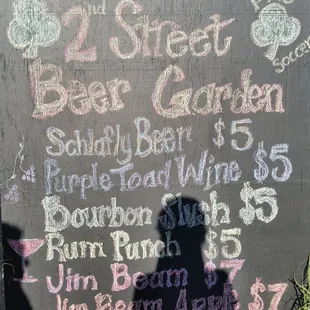 2nd Street
Beer Garden
Soccer
Schlafly Beer $5
Purple Toad Wine $5
Bourbon Slush $5
Rum Punch $5
Jim Beam $7
Jim Beam Apple $7